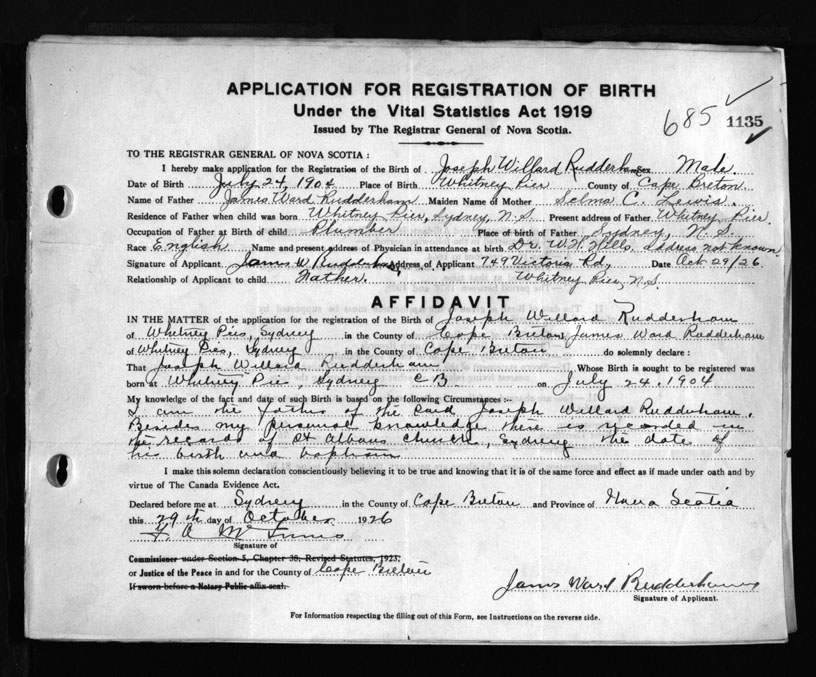 APPLICATION FOR REGISTRATION OF BIRTH
Under the Vital Statistics Act 1919
685 1135
Issued by The Registrar General of Nova Scotia.
TO THE REGISTRAR GENERAL OF NOVA SCOTIA:
I hereby make application for the Registration of the Birth of Joseph Willard Rudderham Sex Male.
Date of Birth July 24, 1904 Place of Birth Whitney Pier County of Cape Breton.
Name of Father James Ward Rudderham Maiden Name of Mother Selma C. Lewis.
Residence of Father when child was born Whitney Pier, Sydney, N.S. Present address of Father Whitney Pier.
Occupation of Father at Birth of child Plumber Place of birth of Father Sydney, N.S.
Race English Name and present address of Physician in attendance at birth Dr. W.H. address not known
Signature of Applicant James W. Rudderham Address of Applicant 749 Victoria Rd, Date Oct 29/26
Relationship of Applicant to child Father. Whitney Pier, N.S.
AFFIDAVIT
IN THE MATTER of the application for the registration of the Birth of Joseph Willard Rudderham
of Whitney Pier, Sydney in the County of Cape Breton, James Ward Rudderham
of Whitney Pier, Sydney in the County of Cape Breton do solemnly declare:
That Joseph Willard Rudderham Whose Birth is sought to be registered was
born at Whitney Pier, Sydney C B on July 24, 1904
My knowledge of the fact and date of such Birth is based on the following Circumstances:—
I am the father of the said Joseph Willard Rudderham.
Besides my personal knowledge there is recorded in
the records of St Albans Church, Sydney the date of
his birth and baptism
I make this solemn declaration conscientiously believing it to be true and knowing that it is of the same force and effect as if made under oath and by
virtue of The Canada Evidence Act.
Declared before me at Sydney in the County of Cape Breton and Province of Nova Scotia
this 29th day of October 1926
Signature of
Commissioner under Section 5, Chapter 38, Revised Statutes, 1923,
or Justice of the Peace in and for the County of Cape Breton
If sworn before a Notary Public affix seal.
James Ward Rudderham
Signature of Applicant.
For Information respecting the filling out of this Form, see Instructions on the reverse side.